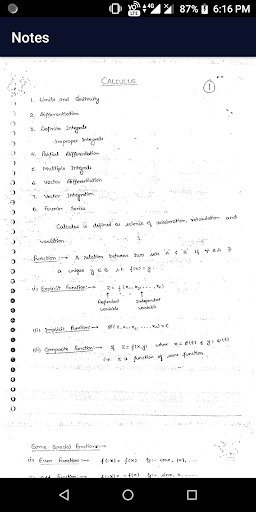 87% 6:16 PM
Notes
CALCULUS
1
1. Limits and Continuity
2. Differentiation
3. Definite Integrals
Improper Integrals
4. Partial Differentiation
5. Multiple Integrals
6. Vector Differentiation
7. Vector Integration
8. Fourier Series
Calculus is defined as science of acceleration, retardation and
variation.
Function :→ A relation between two sets 'A' & 'B' if ∀ x∈A ∃
a unique y ∈ B s.t f(x) = y.
(i) Explicit Function :→ Z = f(x₁, x₂, ....., xₙ)
Dependent Independent
variable variable
(ii) Implicit Function :→ Φ(z, x₁, x₂, ....., xₙ) = c
(iii) Composite Function :→ If Z = f(x,y) where x = φ(t) & y = ψ(t)
i.e. Z is function of some function
Some Special Functions :→
(i) Even Function : f(-x) = f(x)
f(-x) = -f(x)